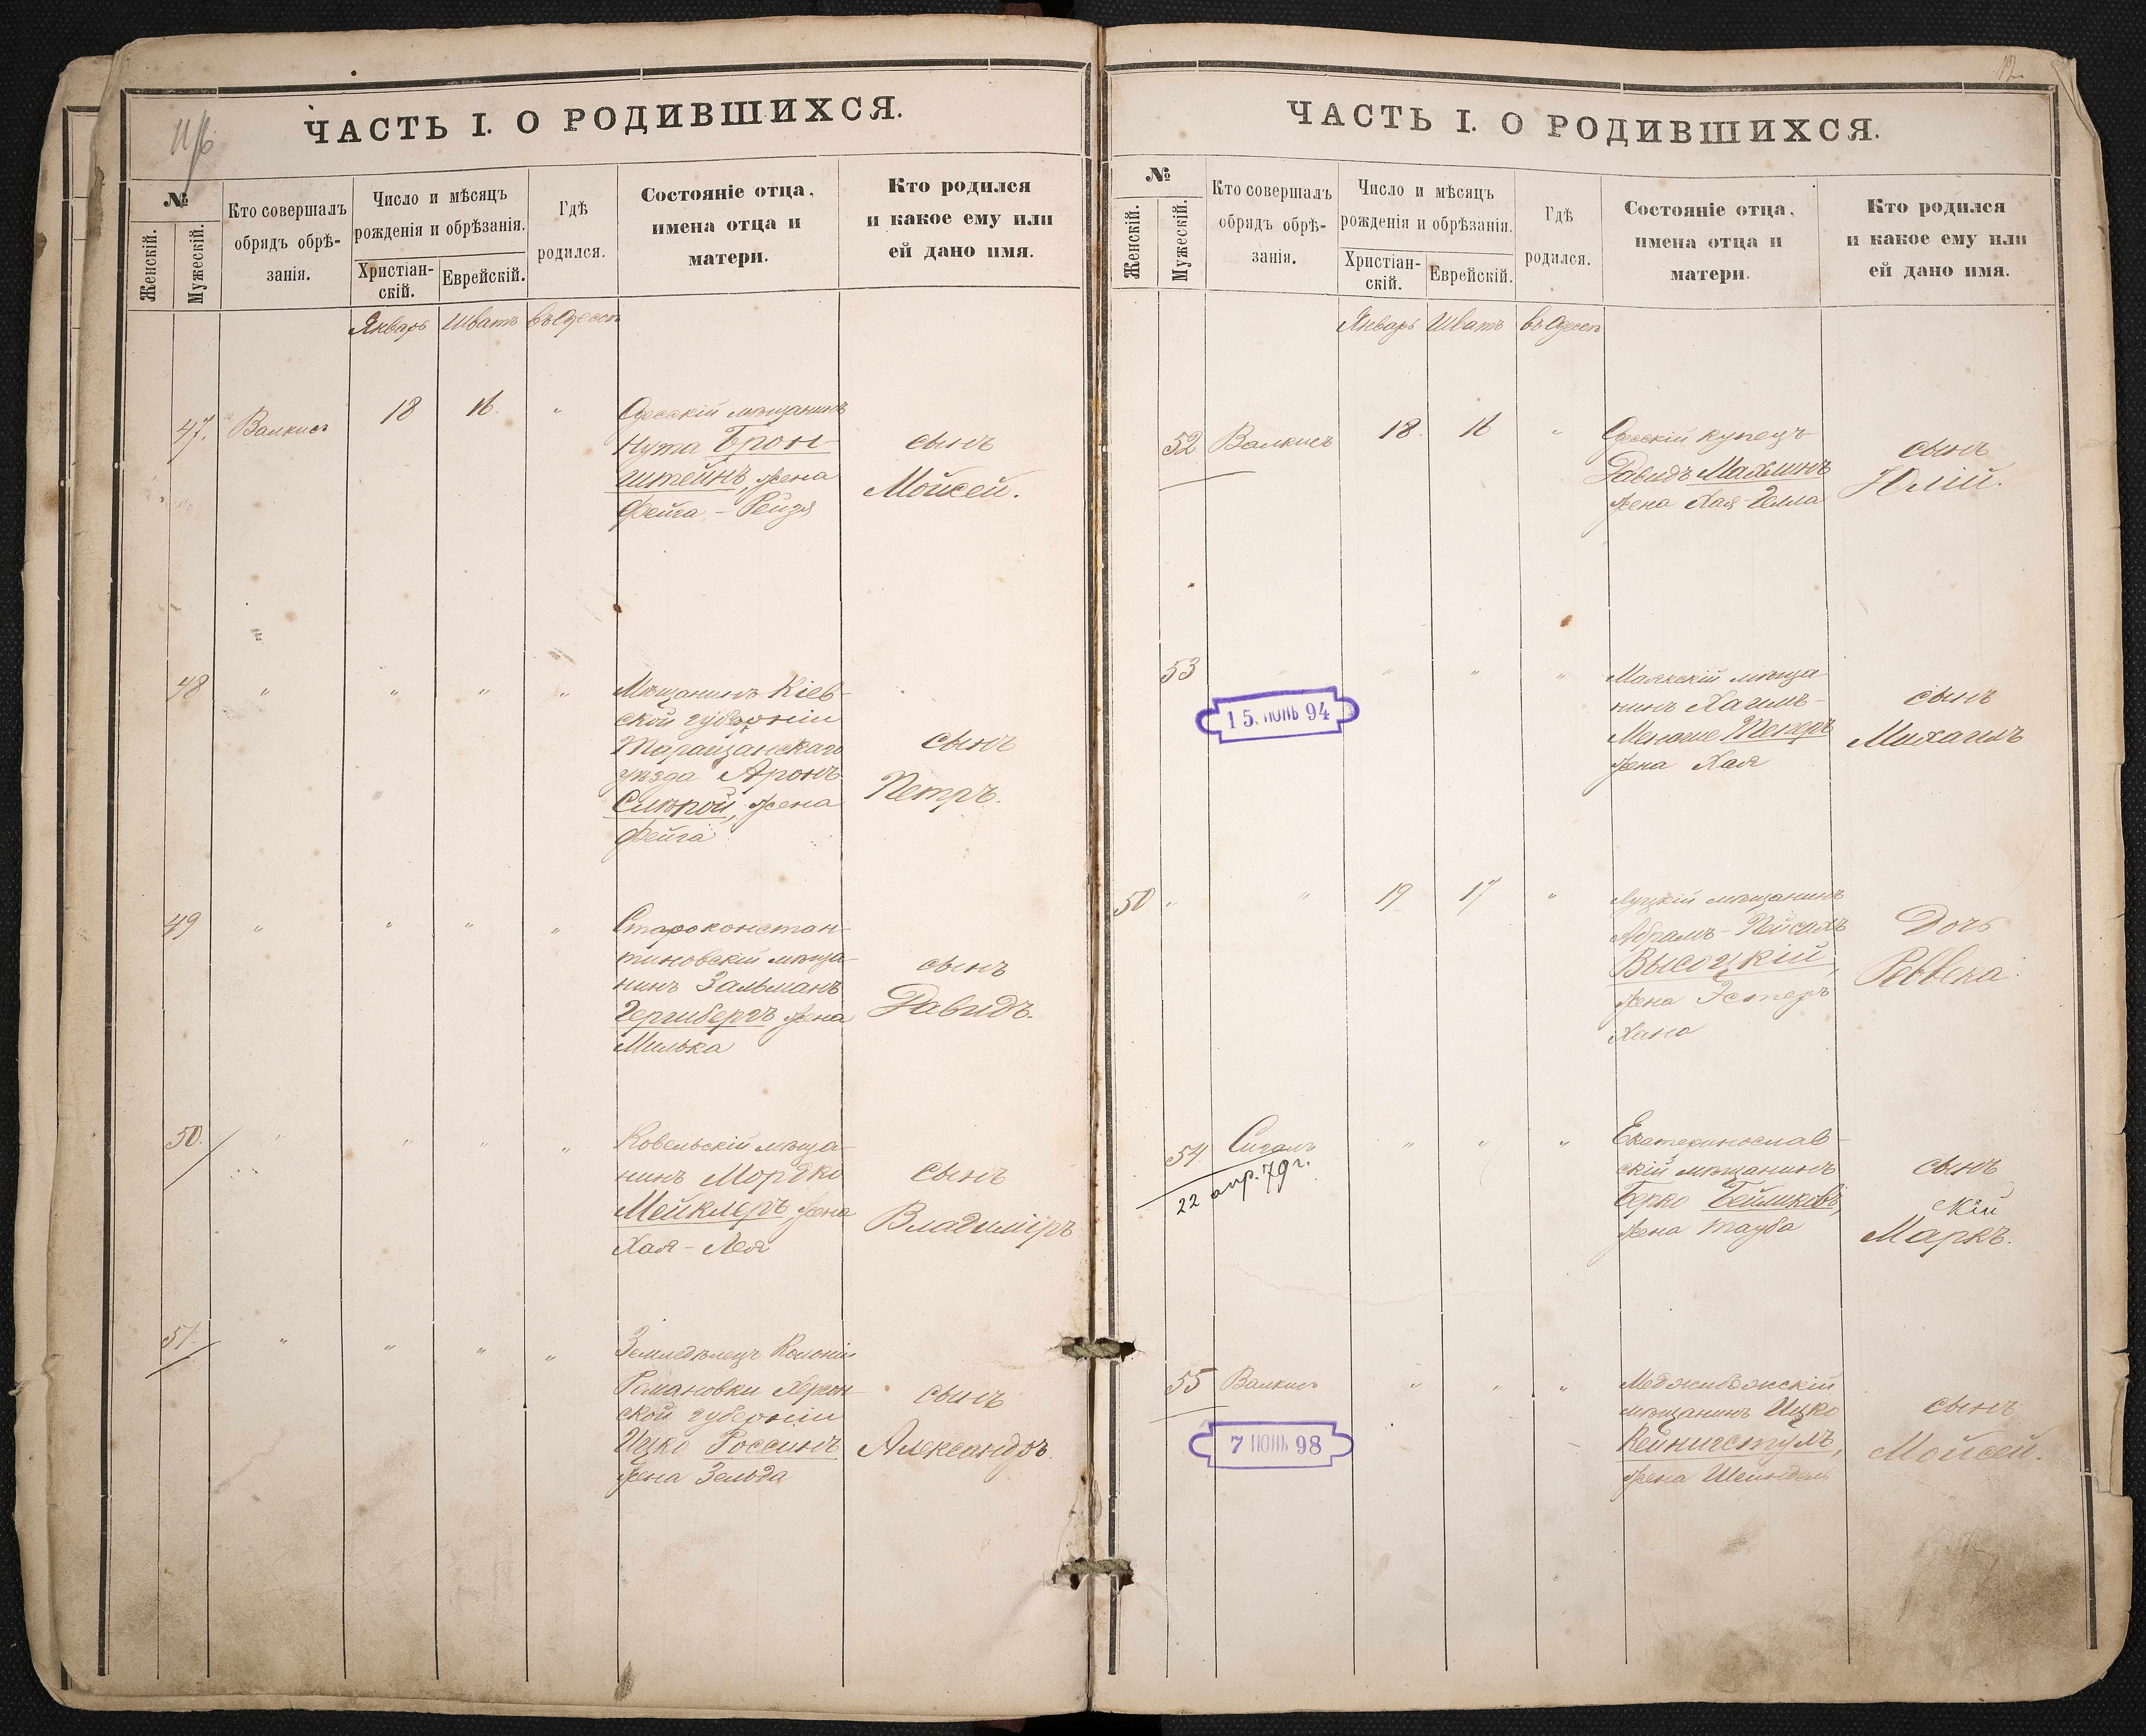 ЧАСТЬ I. О РОДИВШИХСЯ.
№
Женскій.
Мужескій.
Кто совершалъ
обрядъ обрѣ-
занія.
Число и мѣсяцъ
рожденія и обрѣзанія.
Христіан-
скій.
Еврейскій.
Гдѣ
родился.
Состояніе отца,
имена отца и
матери.
Кто родился
и какое ему или
ей дано имя.
Январь Шватъ въ Одессѣ
47. Валкисъ 18 16. "
Одесскій мѣщанинъ
Нута Брон-
штейнъ, жена
Фейга - Рейзя
сынъ
Мойсей.
48 " " " "
Мѣщанинъ Кіев-
ской губерніи
Таращанскаго
уѣзда Аронъ
жена
Фейга
сынъ
Петръ.
49 " " " "
Староконстан-
тиновскій мѣща-
нинъ Зальманъ
Гершбергъ жена
Милька
сынъ
Давидъ.
50. " " " "
Ковельскій мѣща-
нинъ Мордко
Мейклеръ жена
Хая - Лея
сынъ
Владиміръ
51. " " " "
Земледѣлецъ Колоніи
Романовки Херсон-
ской губерніи
Ицко Россинъ
жена Зельда
сынъ
Александръ.
ЧАСТЬ I. О РОДИВШИХСЯ.
№
Женскій.
Мужескій.
Кто совершалъ
обрядъ обрѣ-
занія.
Число и мѣсяцъ
рожденія и обрѣзанія.
Христіан-
скій.
Еврейскій.
Гдѣ
родился.
Состояніе отца,
имена отца и
матери.
Кто родился
и какое ему или
ей дано имя.
Январь Шватъ въ Одессѣ
52 Валкисъ 18. 16 "
Одесскій купецъ
Давидъ Махлинъ
жена Хая
сынъ
Юлій.
53 " " "
15. ІЮНЬ 94
Маякскій мѣща-
нинъ Хаимъ-
Менаше
жена Хая
сынъ
Михаилъ
50 " " 19 17 "
Луцкій мѣщанинъ
Абрамъ - Пейсахъ
Высоцкій,
жена Эстеръ
Хана
Дочь
Реввека.
54 Сигалъ " " "
22 апр. 79 г.
Екатеринослав-
скій мѣщанинъ
Берко Беймиковъ,
скій
жена Тауба
сынъ
Маркъ.
55 Валкисъ " " "
7 ІЮНЬ 98
Меджибожскій
мѣщанинъ Ицко
Кейнигстулъ,
жена Шейндель
сынъ
Мойсей.